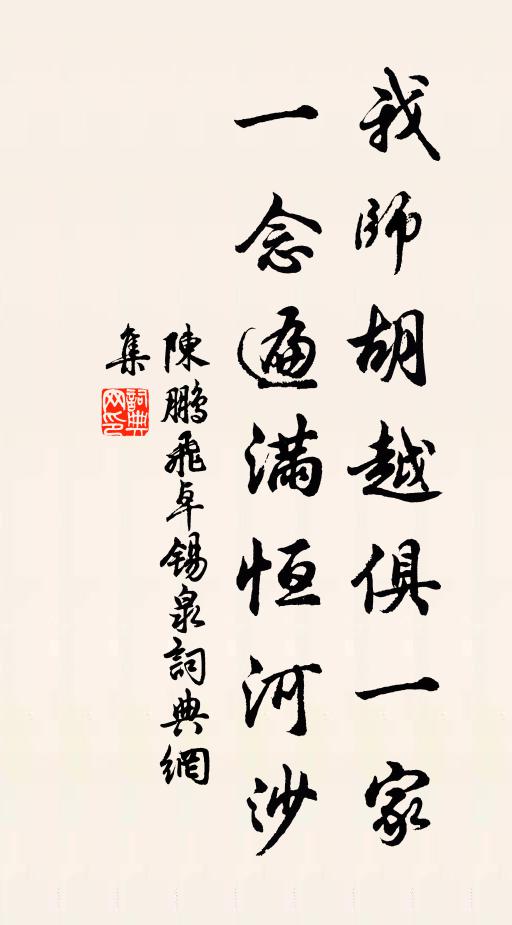 我師胡越俱一家
一念遍滿恒河沙
陳鵬飛卓錫泉詞典網
集
詞典网印